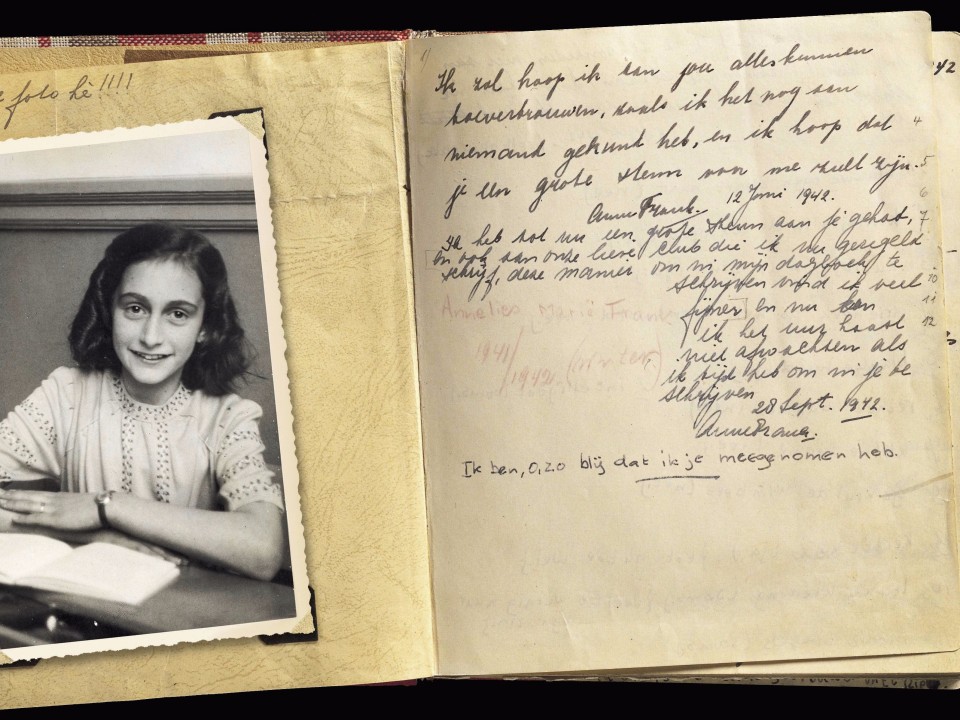 foto hè!!!!
Ik zal hoop ik aan jou alles kunnen
toevertrouwen, zoals ik het nog aan
niemand gekunt heb, en ik hoop dat 4
je een grote steun voor me zult zijn. 5
Anne Frank. 12 Juni 1942. 6
Ik heb tot nu een grote steun aan je gehad, 7
en ook aan onze lieve club die ik nu geregeld
schrijf, deze manier om in mijn dagboek te
schrijven vind ik veel 10
fijner en nu kan 11
ik het uur haast 12
niet afwachten als
ik tijd heb om in je te
schrijven
28 Sept. 1942.
Anne Frank.
Annelies Marie Frank
1941/
1942 (winter)
Ik ben, O, zo blij dat ik je meegenomen heb.
42